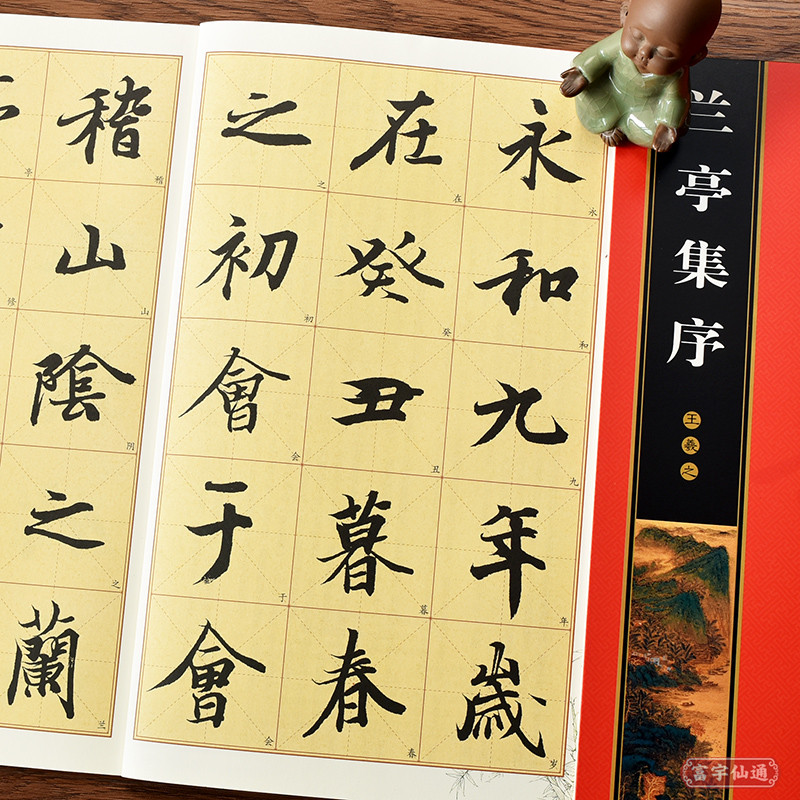 兰亭集序
王羲之
永和九年歲
永和九年岁
在癸丑暮春
在癸丑暮春
之初會于會
之初会于会
稽山陰之蘭
稽山阴之兰
亭修
富宇仙通